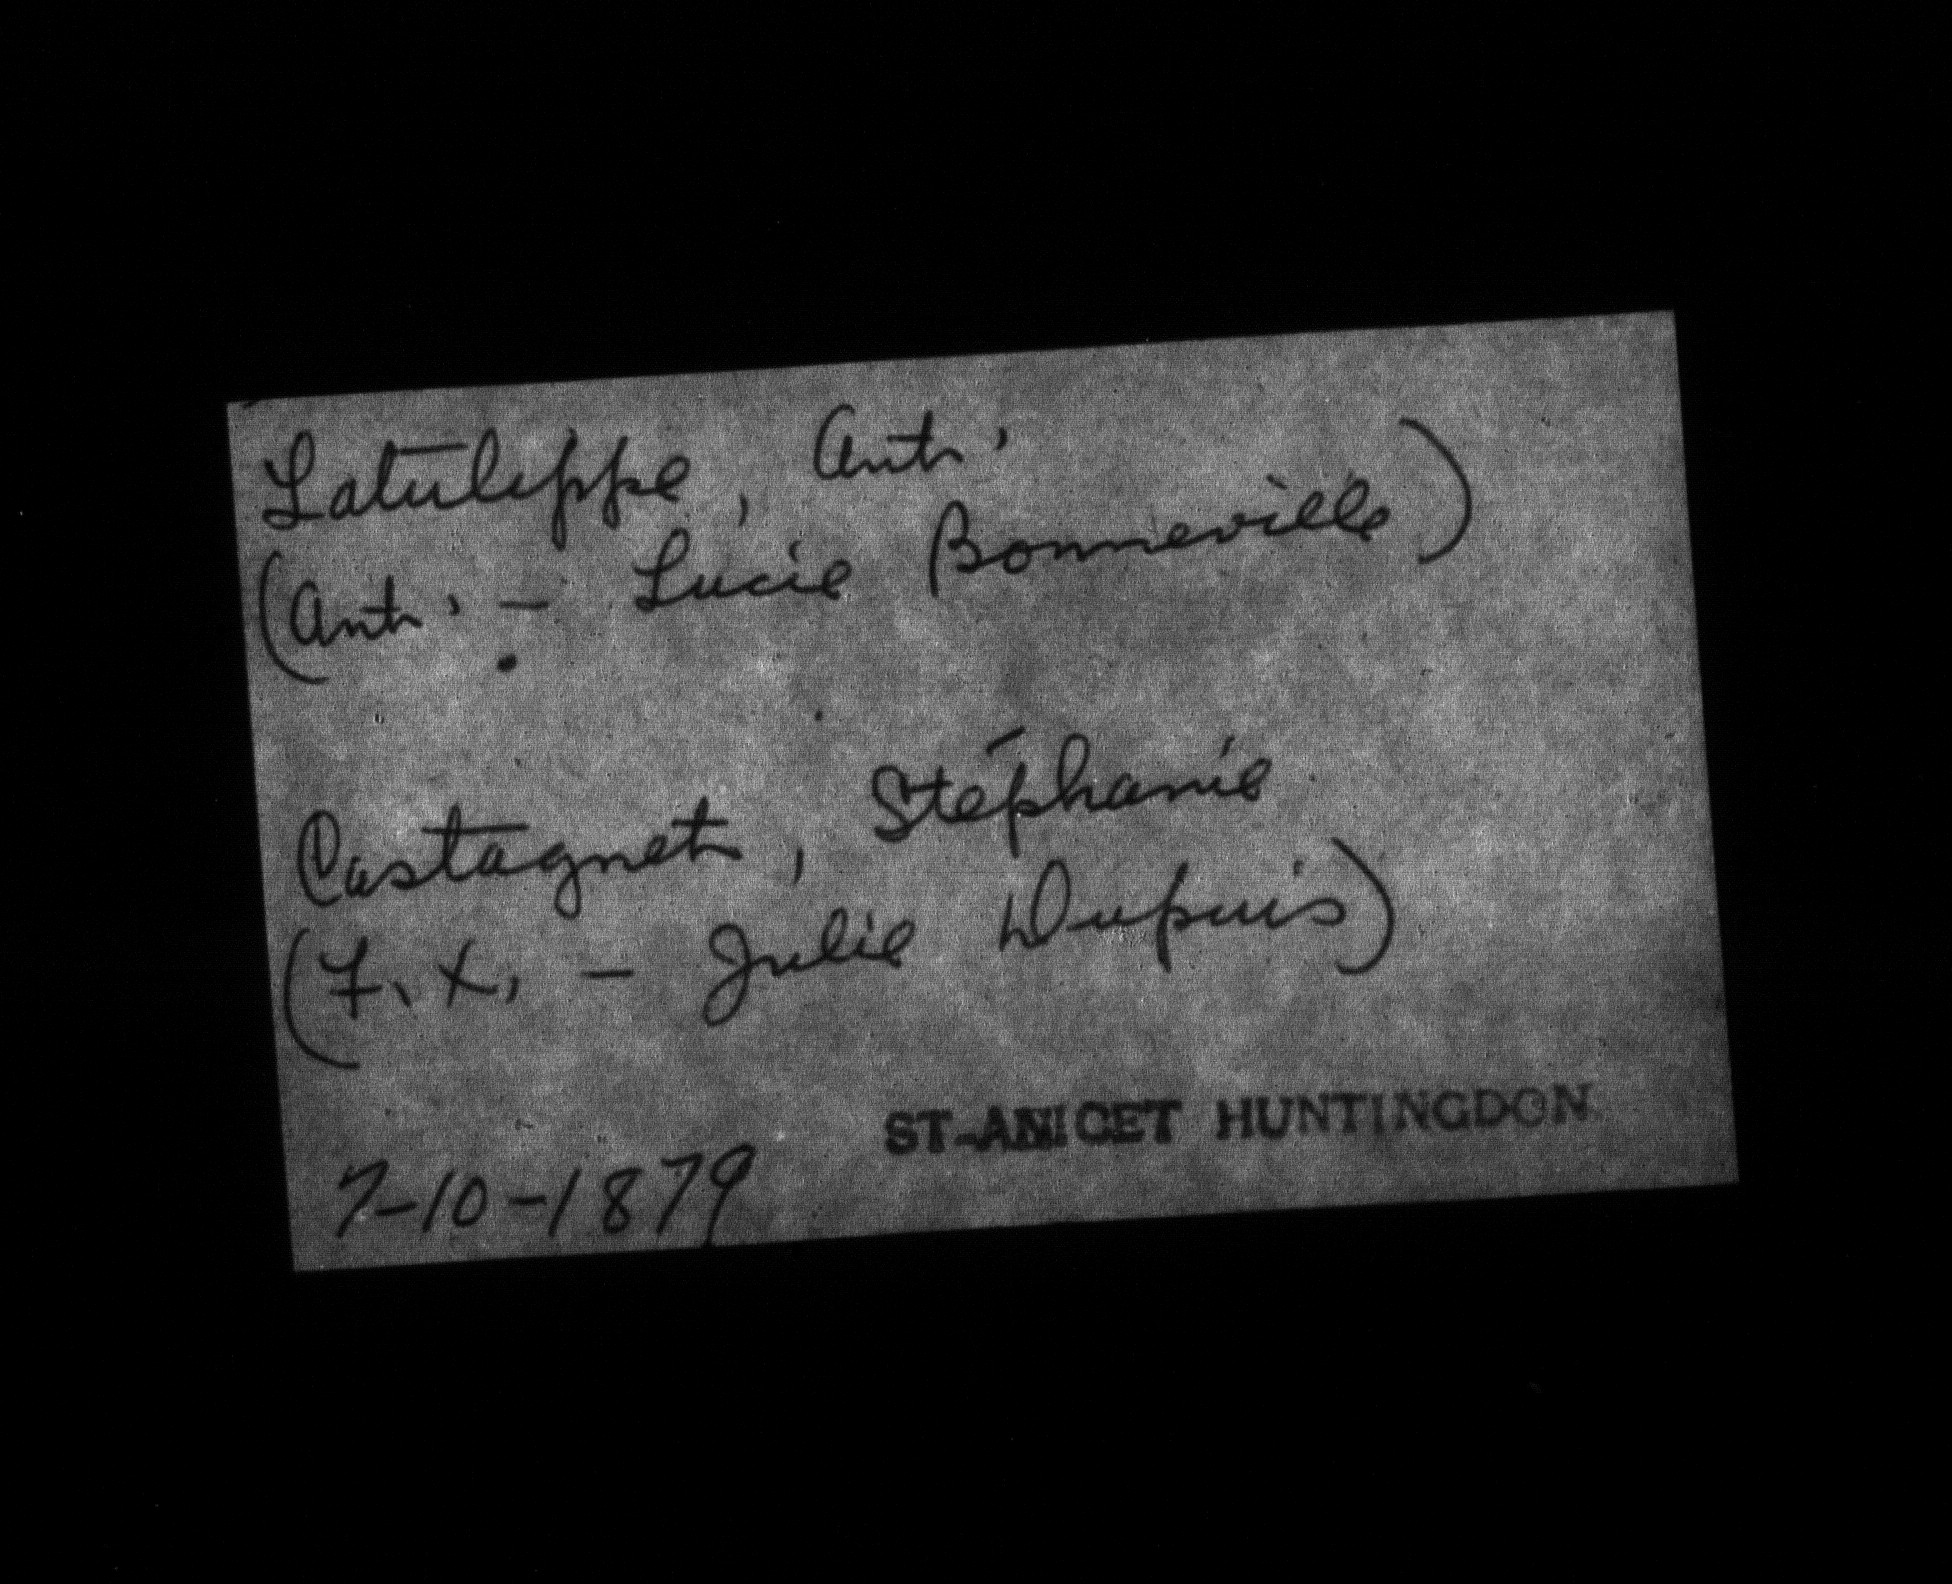 Latuleppe, Ant.
(Ant. - Lucie Bonneville)
Castagnet, Stéphanie
(F. X. - Julie Dupuis)
7-10-1879 ST-ANICET HUNTINGDON